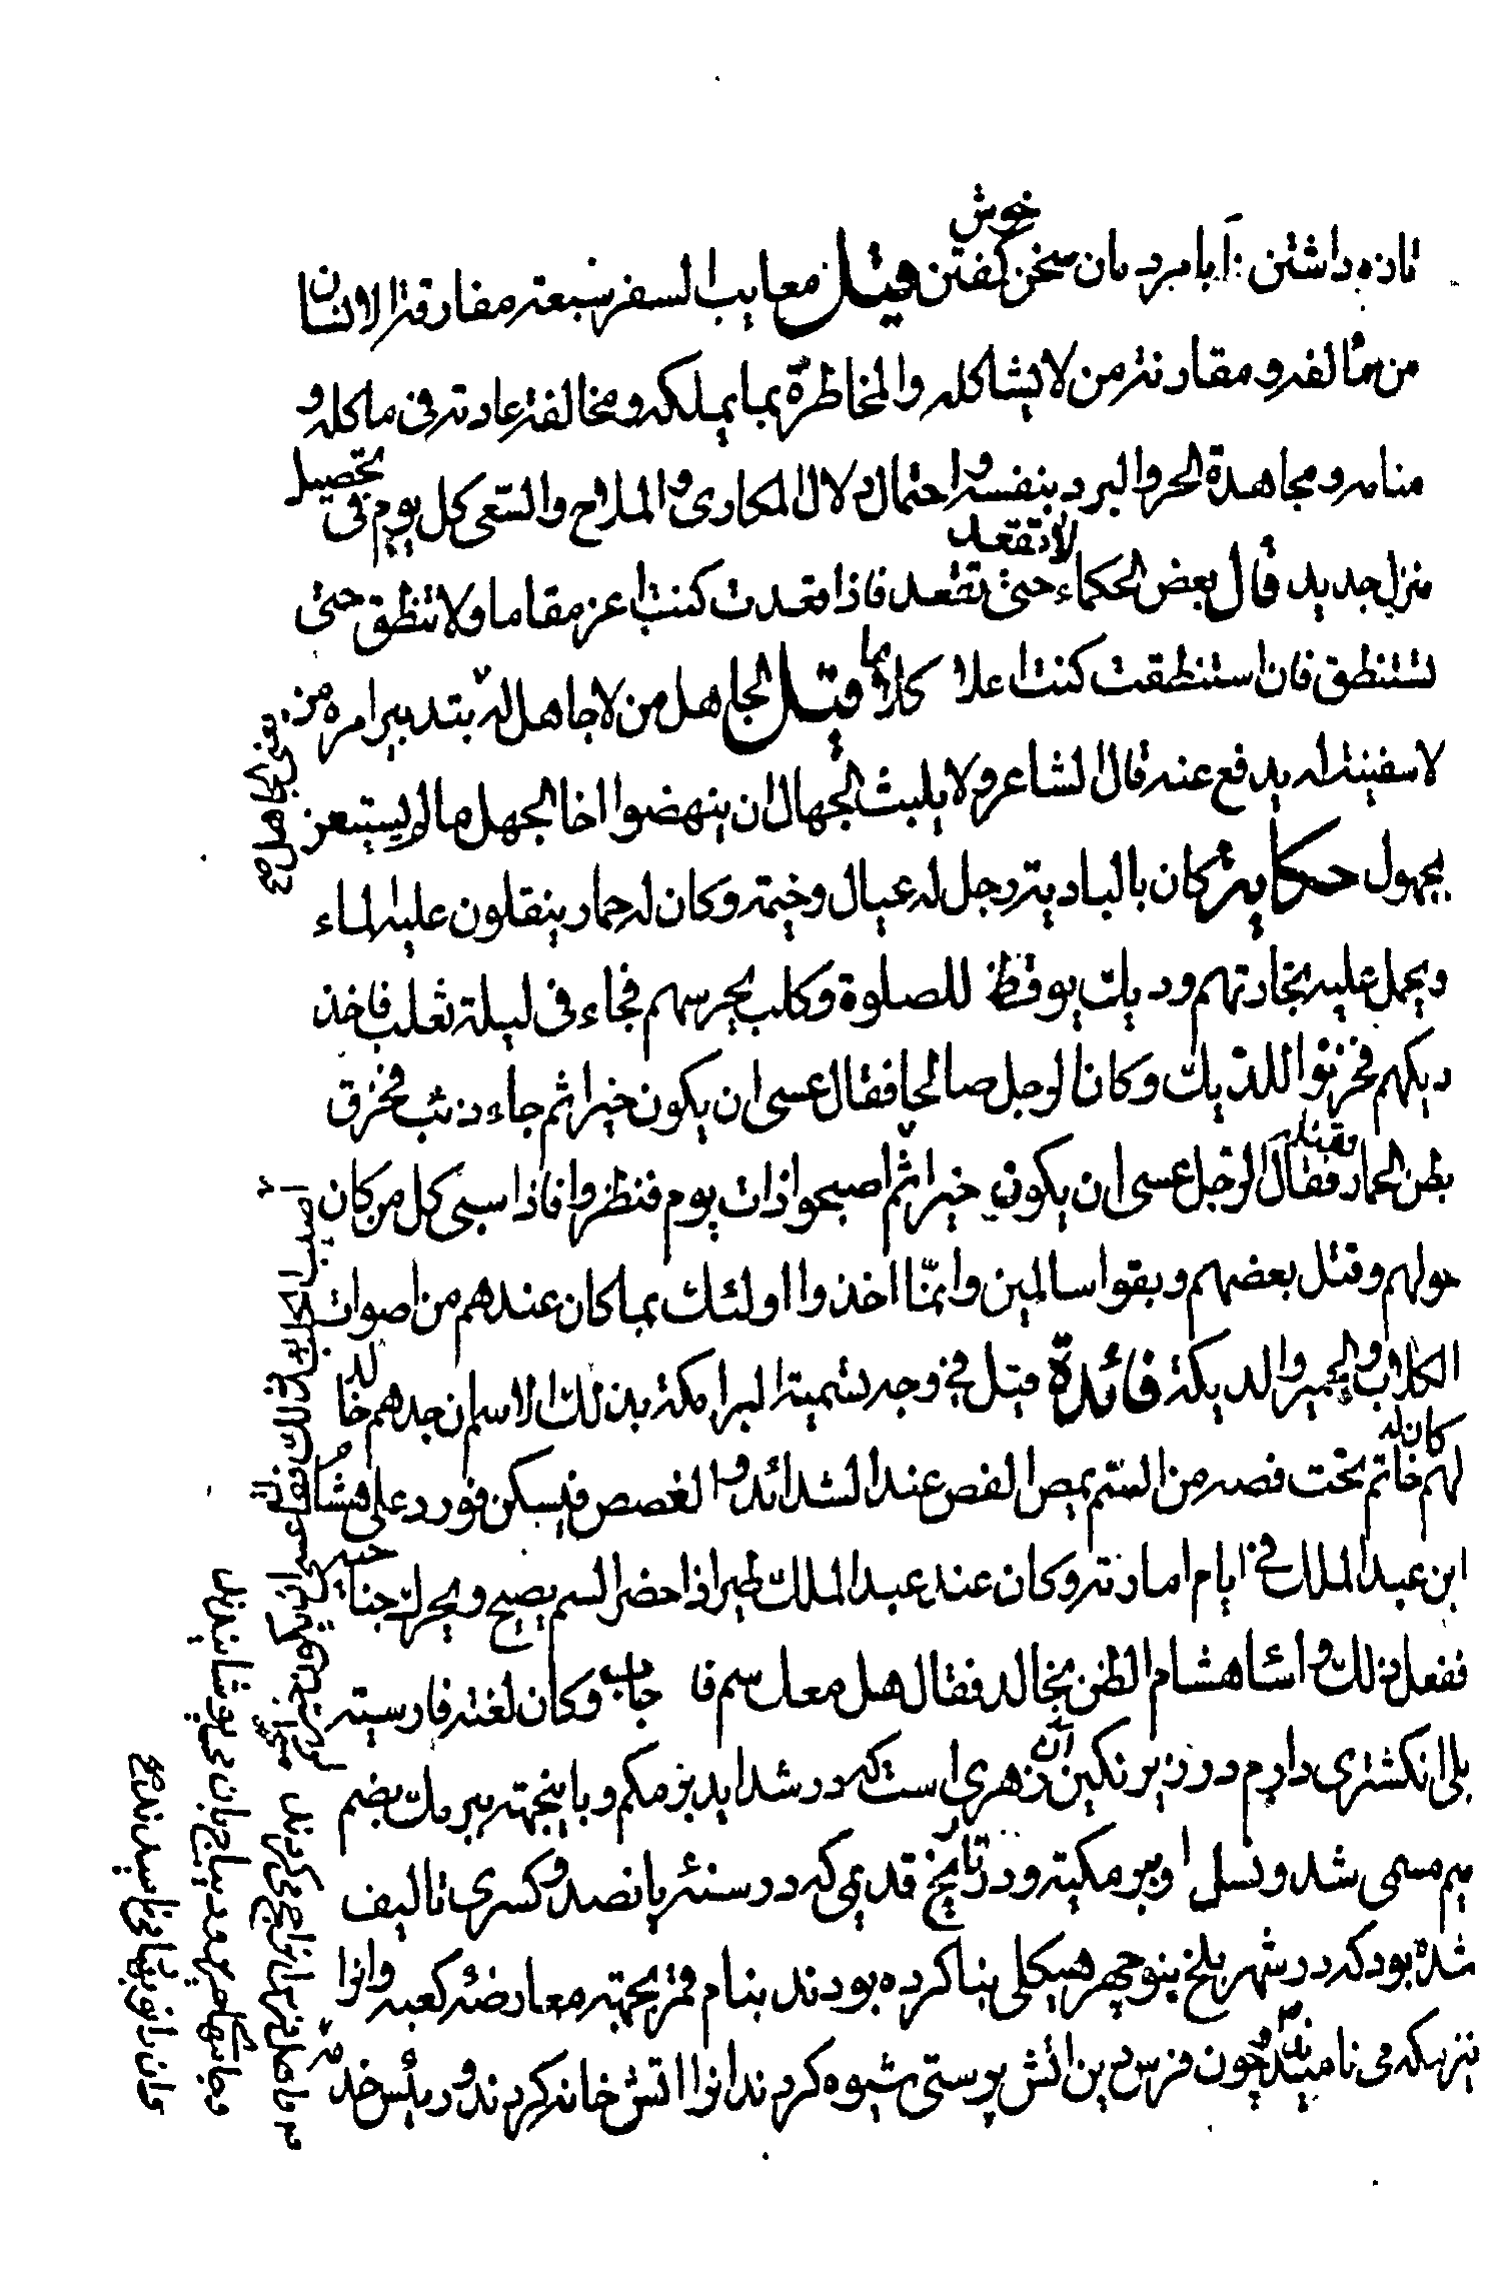 تازه داشتن : آ با مردمان سخن خوش گفتن قیل معایب السفر سبعة مفارقة الانسان
من یألفه و مقارنة من لا یشاکله والمخاطرة بما یملکه و مخالفة عادته فی ماکله و
منامه و مجاهدة الحر والبرد بنفسه و احتمال دلال المکاری و الملاح والسعی کل یوم فی تحصیل
منزل جدید قال بعض الحکماء لا تقعد حتی تقعد فاذا قعدت کنت اعز مقاما ولا تنطق حتی
تستنطق فان استنطقت کنت اعلا کلاما قیل الجاهل من لا جاهل له بتدبیر امره من
لا سفیه له یدفع عنه قال الشاعر و لا یلبث الجهال ان ینهضوا اخا الجهل مالم یستعن
بجهول حکایة کان بالبادیة رجل له عیال و خیمة و کان له حمار ینقلون علیه الماء
و یحمل علیه تجارتهم و دیک یوقظ للصلوة و کلب یحرسهم فجاء فی لیلة ثعلب فاخذ
دیکهم فحزنوا للدیک و کان الرجل صالحا فقال عسی ان یکون خیرا ثم جاء ذئب فخرق
بطن الحمار وقتله فقال الرجل عسی ان یکون خیرا ثم اصبحوا ذات یوم فنظروا فاذا سبی کل من کان
حولهم و قتل بعضهم و بقوا سالمین و انما اخذوا اولئک بما کان عندهم من اصوات
الکلاب و الحمیر و الدیکة فائدة قیل فی وجه تسمیة البرامکة بذلک الاسم ان جدهم خالد
کان له خاتم تحت فصه من السم یمص الفص عند الشدائد و الغصص فیسکن فورد علی هشام
ابن عبد الملک فی ایام امارته و کان عند عبد الملک طیر اذا حضر السم یصیح و یحرک جناحیه
ففعل ذلک و اساء هشام الظن بخالد فقال هل معک سم فاجاب و کان لغته فارسیة
بلی انکشتری دارم در زیر نکین آن زهری است که در شداید بر مکم و باینجهته برمک بضم
میم مسمی شد و نسل او برمکیه و در تاریخ قدیمی که در سنه پانصد و کسری تالیف
شده بود که در شهر بلخ بنوچهر هیکلی بنا کرده بودند بنام قمر بجهته معارضه کعبه و انرا
نیز مکه می نامیدند و چون فرس دین اتش پرستی شیوه کردند انرا اتش خانه کردند و رئیس خدمه
یعنی الجاهل
اصیب الکلب بعد ذلک فقال عسی ان یکون خیرا